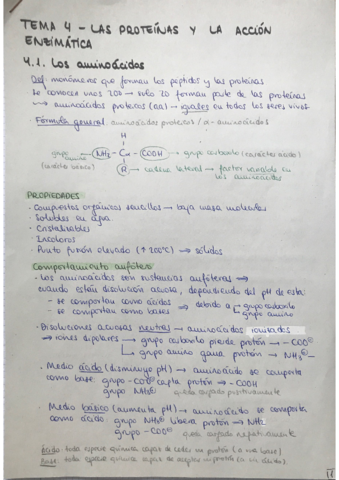 TEMA 4 - LAS PROTEÍNAS Y LA ACCIÓN
ENZIMÁTICA
4.1. Los aminoácidos
Def: monómeros que forman los péptidos y las proteínas
se conocen unos 200 → solo 20 forman parte de las proteínas
→ aminoácidos proteicos (aa) → iguales en todos los seres vivos
Fórmula general: aminoácidos proteicos / α-aminoácidos
H
grupo amino (carácter básico) NH2 - Cα - COOH → grupo carboxilo (carácter ácido)
R → cadena lateral → factor variable en
los aminoácidos
PROPIEDADES
· Compuestos orgánicos sencillos → baja masa molecular
· Solubles en agua
· Cristalizables
· Incoloros
· Punto fusión elevado (↑200°C) → sólidos
Comportamiento anfótero
· Los aminoácidos son sustancias anfóteras →
cuando están disolución acuosa, dependiendo del pH de esta:
- se comportan como ácidos → debido a grupo carboxilo
- se comportan como bases grupo amino
· Disoluciones acuosas neutras → aminoácidos ionizados
→ iones dipolares → grupo carboxilo pierde protón → -COO⁻
grupo amino gana protón → NH3⁺-
· Medio ácido (disminuye pH) → aminoácido se comporta
como base: grupo -COO⁻ capta protón → -COOH
grupo NH3⁺ queda cargado positivamente
Medio básico (aumenta pH) → aminoácido se comporta
como ácido: grupo NH3⁺ libera protón → NH2
grupo -COO⁻ queda cargado negativamente
Ácido: toda especie química capaz de ceder un protón (a una base)
Base: toda especie química capaz de aceptar un protón (de un ácido)